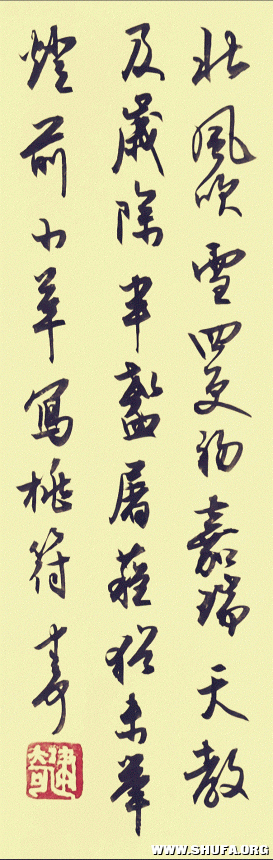 北風吹雪四更初嘉瑞天教
及歲除半盞屠蘇猶未舉
燈前小草寫桃符
WWW.SHUFA.ORG